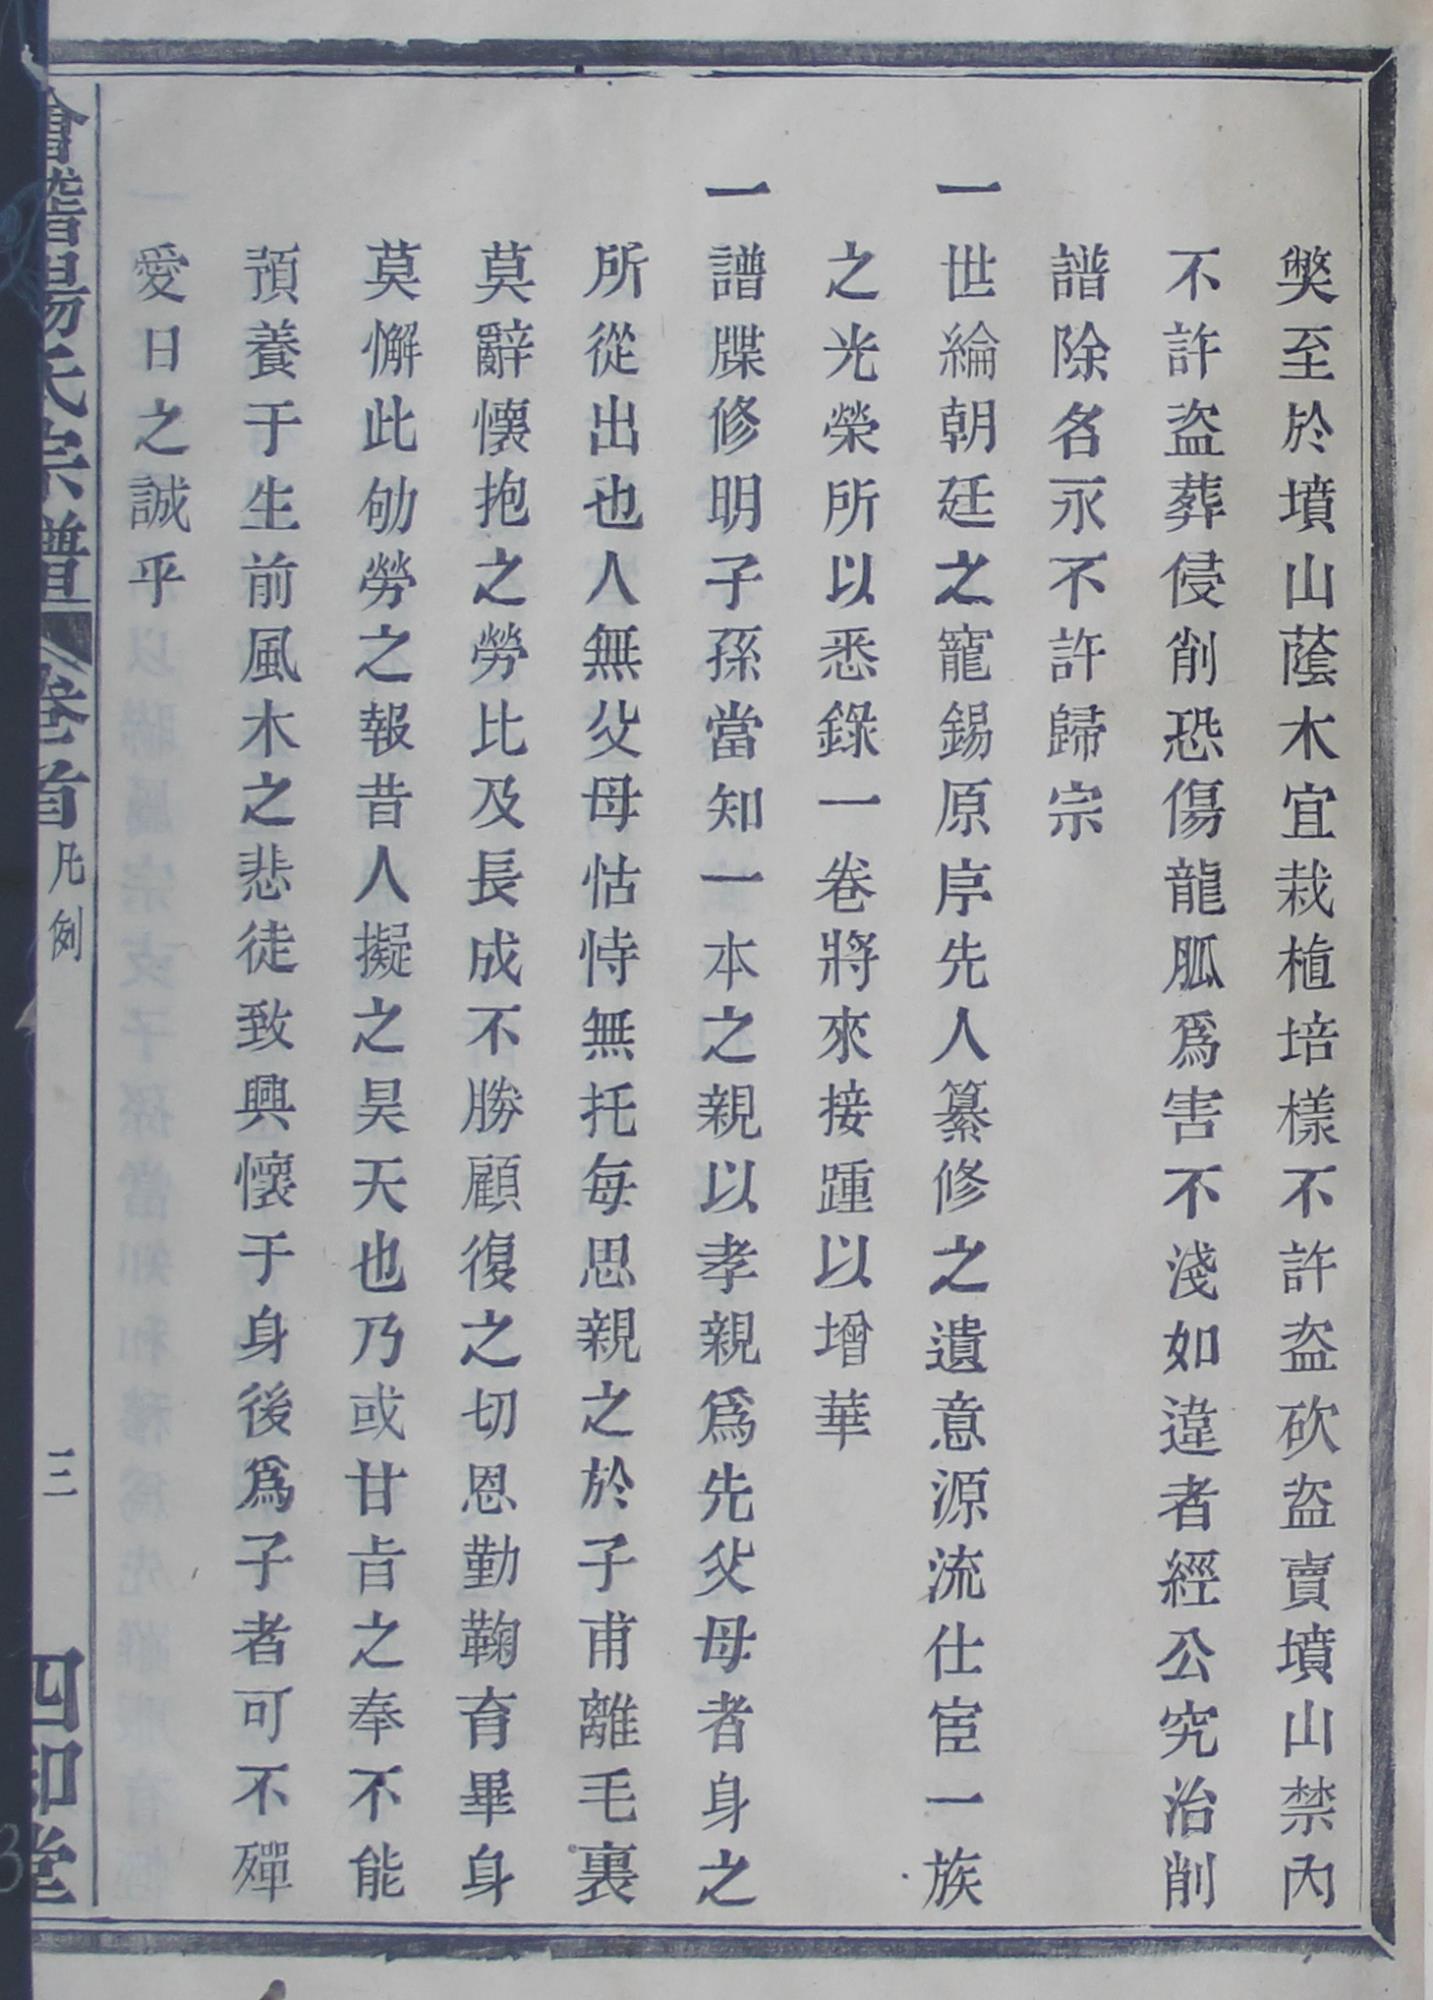 獘至於墳山蔭木宜栽植培樣不許盜砍盜賣墳山禁內
不許盜葬侵削恐傷龍脈爲害不淺如違者經公究治削
譜除名永不許歸宗
一世綸朝廷之寵錫原序先人纂修之遺意源流仕宦一族
之光榮所以悉錄一卷將來接踵以增華
一譜牒修明子孫當知一本之親以孝親爲先父母者身之
所從出也人無父母怙恃無托每思親之於子甫離毛裏
莫辭懷抱之勞比及長成不勝顧復之切恩勤鞠育畢身
莫懈此劬勞之報昔人擬之昊天也乃或甘旨之奉不能
預養于生前風木之悲徒致興懷于身後爲子者可不殫
愛日之誠乎
會稽湯氏宗譜 卷首 凡例 三 四知堂